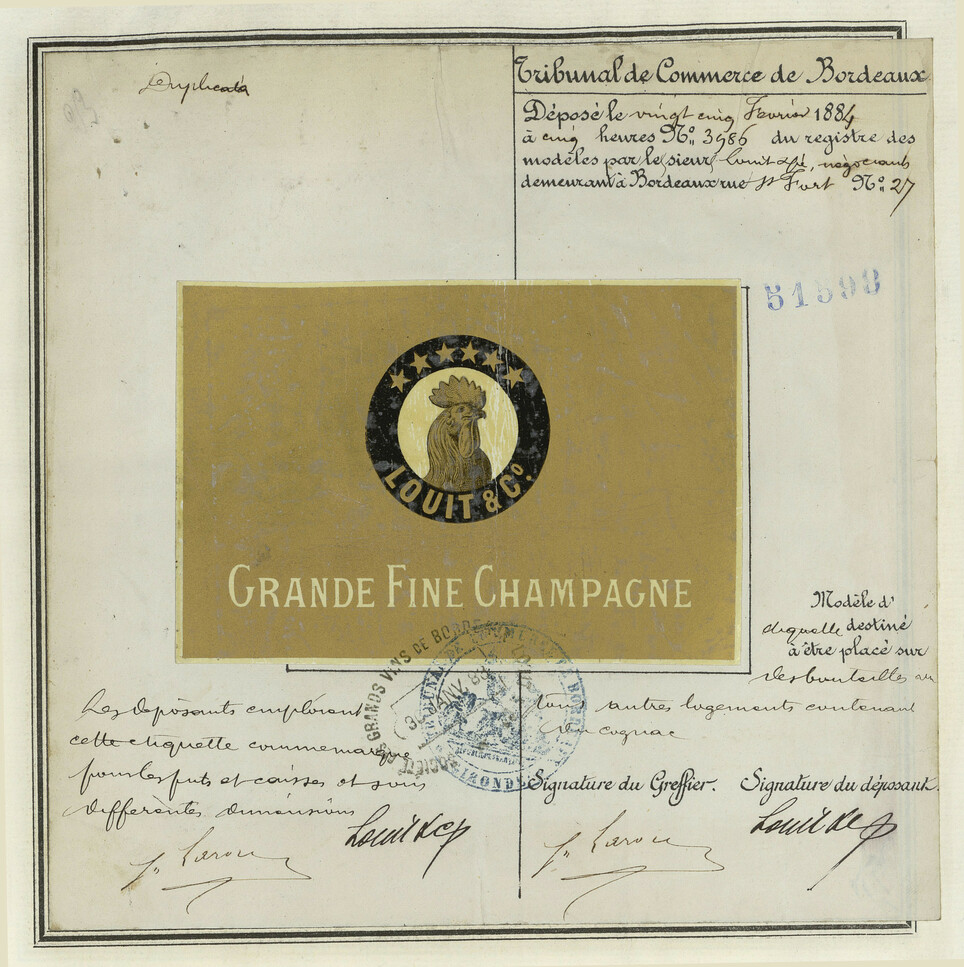 Duplicata
Tribunal de Commerce de Bordeaux
Déposé le vingt cinq Fevrier 1884
à cinq heures N.º 3986 du registre des
modèles par le sieur Louit & Cie, négociants
demeurant à Bordeaux rue St Fort N.º 27
51598
LOUIT & Cº.
GRANDE FINE CHAMPAGNE
Modèle d'
étiquette destiné
à être placé sur
des bouteilles ou
tous autres logements contenant
du cognac
Les déposants emploient
cette étiquette comme marque
pour les futs et caisses et sous
differentes dimensions
SOCIÉTÉ GRANDS VINS DE BORDE
JANV. 88
GIRONDE
Signature du Greffier. Signature du déposant.
Louit & Cp
Louit & Cp